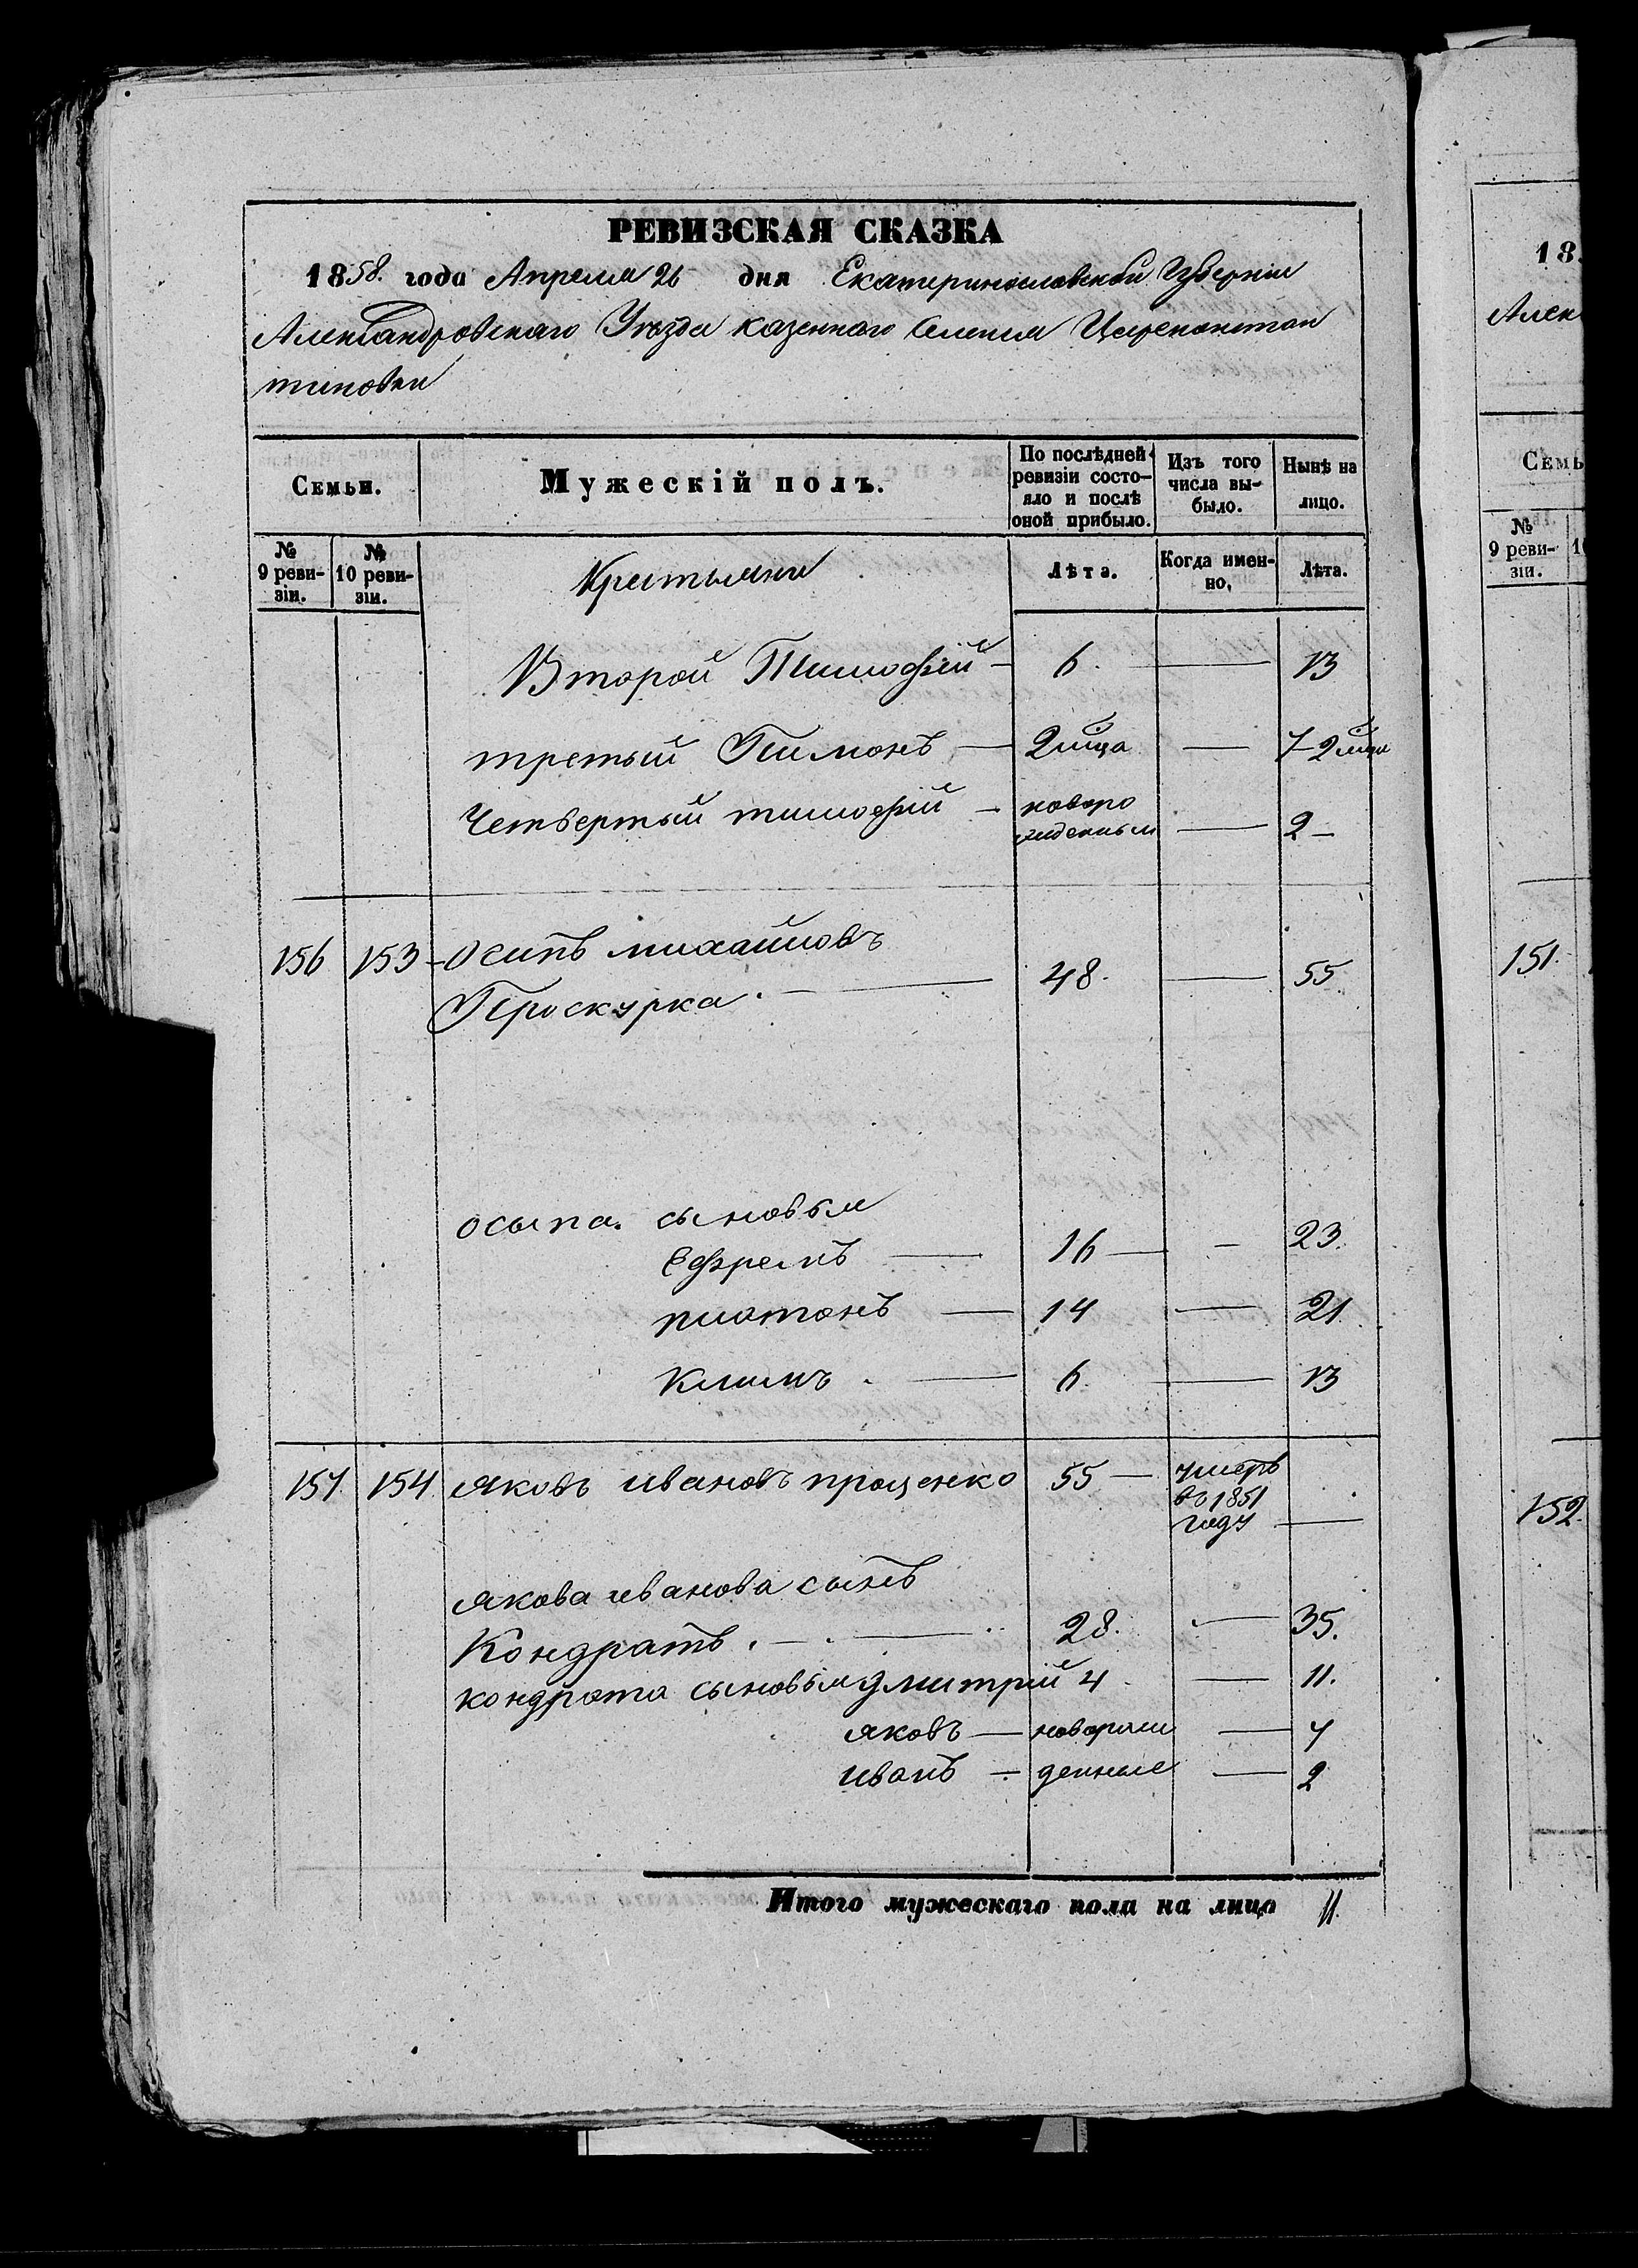 РЕВИЗСКАЯ СКАЗКА
1858. года Апреля 26 дня Екатеринославской Губерніи
Александровскаго Уѣзда казеннаго Селенія Цареконстан
тиновки
Семьи. Мужескій полъ. По послѣдней ревизіи состо-яло и послѣ оной прибыло. Изъ того числа вы-было. Нынѣ на лицо.
№ 9 реви-зіи. № 10 реви-зіи. Крестьяни Лѣта. Когда имен-но, Лѣта.
Второй Тимофѣй — 6. — 13
третый Пимонъ — 2 мца — 7-2 мца
Четвертый тимофій — новоро
жденный — 2 —
156 153 - Осипъ михайловъ
Проскурка. — 48. — 55
осыпа. сыновья
Ефремъ — 16 — — 23.
платонъ — 14 — 21.
Климъ . — 6. — 13
157 154 яковъ ивановъ проценко 55 — умеръ
въ 1851
году —
якова иванова сынъ
Кондратъ . — . — 28. — 35.
кондрата сыновья дмитрій 4 — 11.
яковъ — новорож — 7
иванъ — денные — 2
Итого мужескаго пола на лицо 11.
18
Алек
Семь
№ 9 реви-зіи.
151.
152.